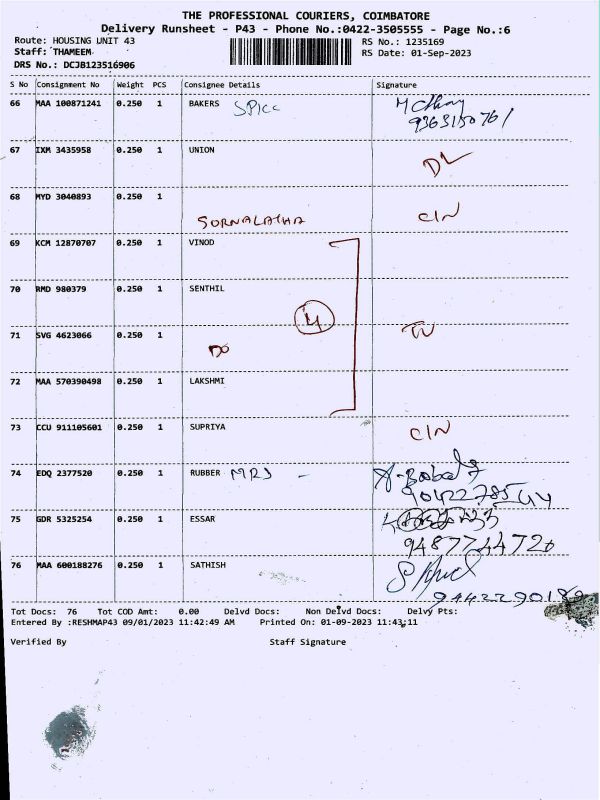 THE PROFESSIONAL COURIERS, COIMBATORE
Delivery Runsheet - P43 - Phone No.:0422-3505555 - Page No.:6
Route: HOUSING UNIT 43
RS No.: 1235169
Staff: THAMEEM
RS Date: 01-Sep-2023
DRS No.: DCJB123516906
S No Consignment No Weight PCS Consignee Details Signature
66 MAA 100871241 0.250 1 BAKERS SPICC
9363150761
67 IXM 3435958 0.250 1 UNION
DL
68 MYD 3040893 0.250 1
SORNALATHA CIN
69 KCM 12870707 0.250 1 VINOD
70 RMD 980379 0.250 1 SENTHIL
4
71 SVG 4623066 0.250 1
DO
72 MAA 570390498 0.250 1 LAKSHMI
73 CCU 911105601 0.250 1 SUPRIYA CIN
74 EDQ 2377520 0.250 1 RUBBER MRJ -
9042278544
75 GDR 5325254 0.250 1 ESSAR
9487744720
76 MAA 600188276 0.250 1 SATHISH
Tot Docs: 76 Tot COD Amt: 0.00 Delvd Docs: Non Delvd Docs: Delvy Pts:
Entered By :RESHMAP43 09/01/2023 11:42:49 AM Printed On: 01-09-2023 11:43:11
Verified By Staff Signature